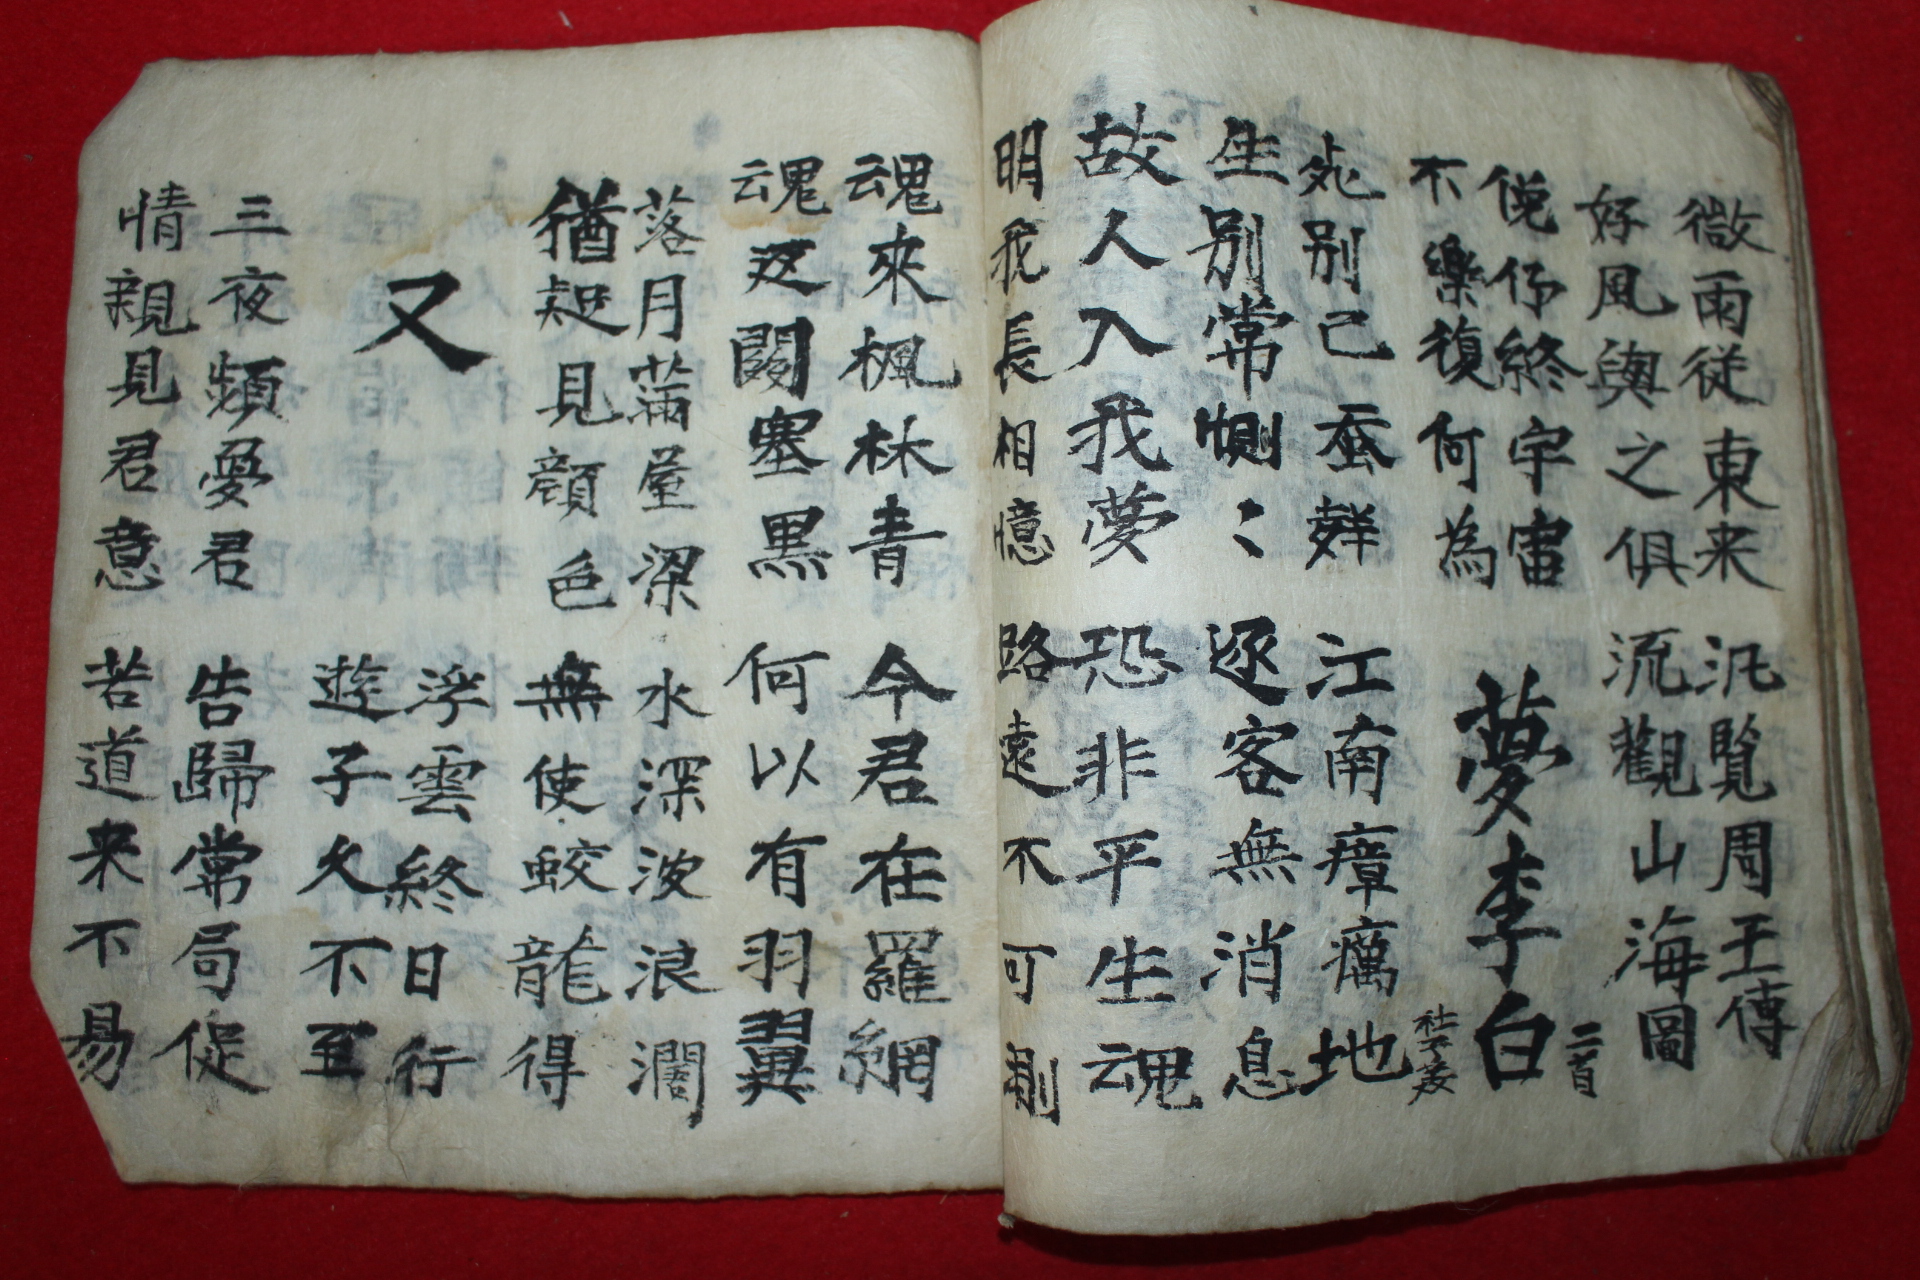 微雨従東来
好風與之俱
汎覧周王傳
流觀山海圖
俛仰終宇宙
不樂復何為
夢李白
二首
杜子美
死別已蚕聲
生別常惻〻
江南瘴癘地
逐客無消息
故人入我夢
明我長相憶
恐非平生魂
路遠不可測
魂來楓林青
魂返関塞黒
今君在羅網
何以有羽翼
落月滿屋梁
猶疑見顔色
水深波浪濶
無使蛟龍得
又
浮雲終日行
遊子久不至
三夜頻愛君
情親見君意
告歸常局促
苦道来不易